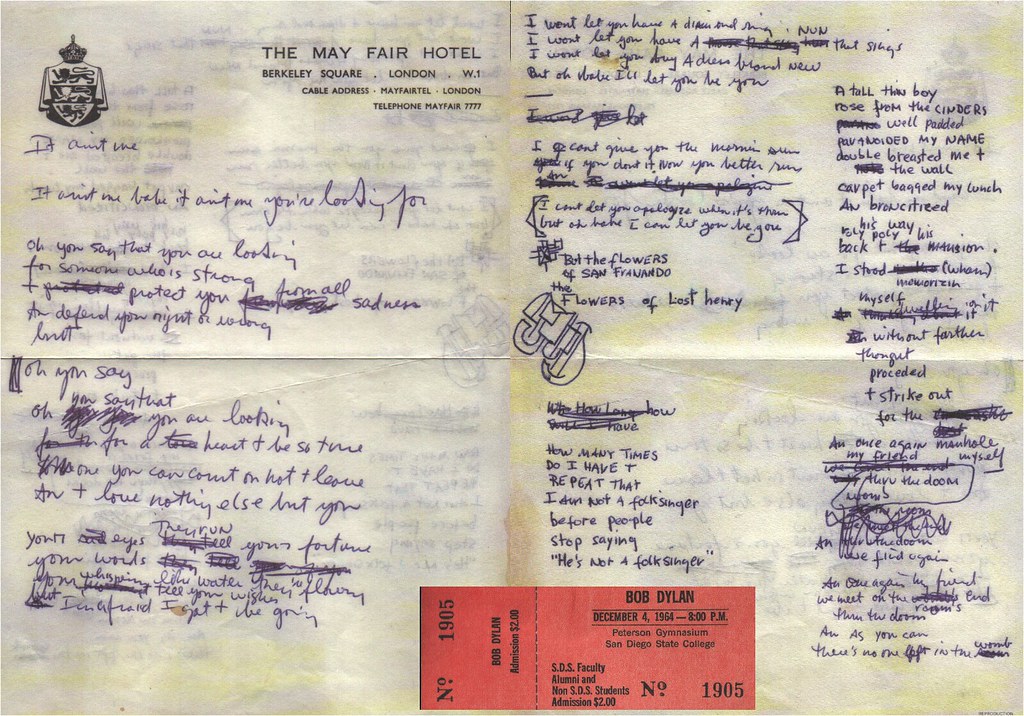 THE MAY FAIR HOTEL
BERKELEY SQUARE . LONDON . W.1
CABLE ADDRESS · MAYFAIRTEL · LONDON
TELEPHONE MAYFAIR 7777
It aint me
It aint me babe it aint me you're looking for
Oh you say that you are looking
for someone who is strong
+ protect you from all sadness
An defend you right or wrong
but
Oh you say
you say that
Oh you are looking
for a heart t be so true
one you can count on not t leave
An t love nothing else but you
your eyes They run your fortune
your words
your whispin like water they're flowing
but tell your wishes
I'm afraid I got t be going
I wont let you have A diamond ring
I wont let you have A NUN that sings
I wont let you buy A dress brand new
But oh babe I'll let you be you
I cant give you the mornin sun
if you dont it now you better run
I cant let you apologize when it's than
but oh babe I can let you be you
But the flowers
of SAN FRNANDO
the
FLOWERS of Lost henry
How Long how
have
HOW MANY TIMES
DO I HAVE T
REPEAT THAT
I Am Not A folksinger
before people
stop saying
"He's Not A folksinger"
A tall thin boy
rose from the CINDERS
well padded
PARANOIDED MY NAME
double breasted me t
the wall
carpet bagged my lunch
An broncitized
his way
roly poly t his
back t MANSION.
I stood (wham)
memorizin
myself
without farther
thought
proceded
t strike out
for the
An once again manhole
my friend myself
thru the doom
womb
An thru the doom
we find again
An once again my friend
we meet on the end
thru the doom room's
An As you can
there's no one left in the womb
Nº 1905
BOB DYLAN
Admission $2.00
BOB DYLAN
DECEMBER 4, 1964 — 8:00 P.M.
Peterson Gymnasium
San Diego State College
S.D.S. Faculty
Alumni and
Non S.D.S. Students
Admission $2.00
Nº 1905
REPRODUCTION